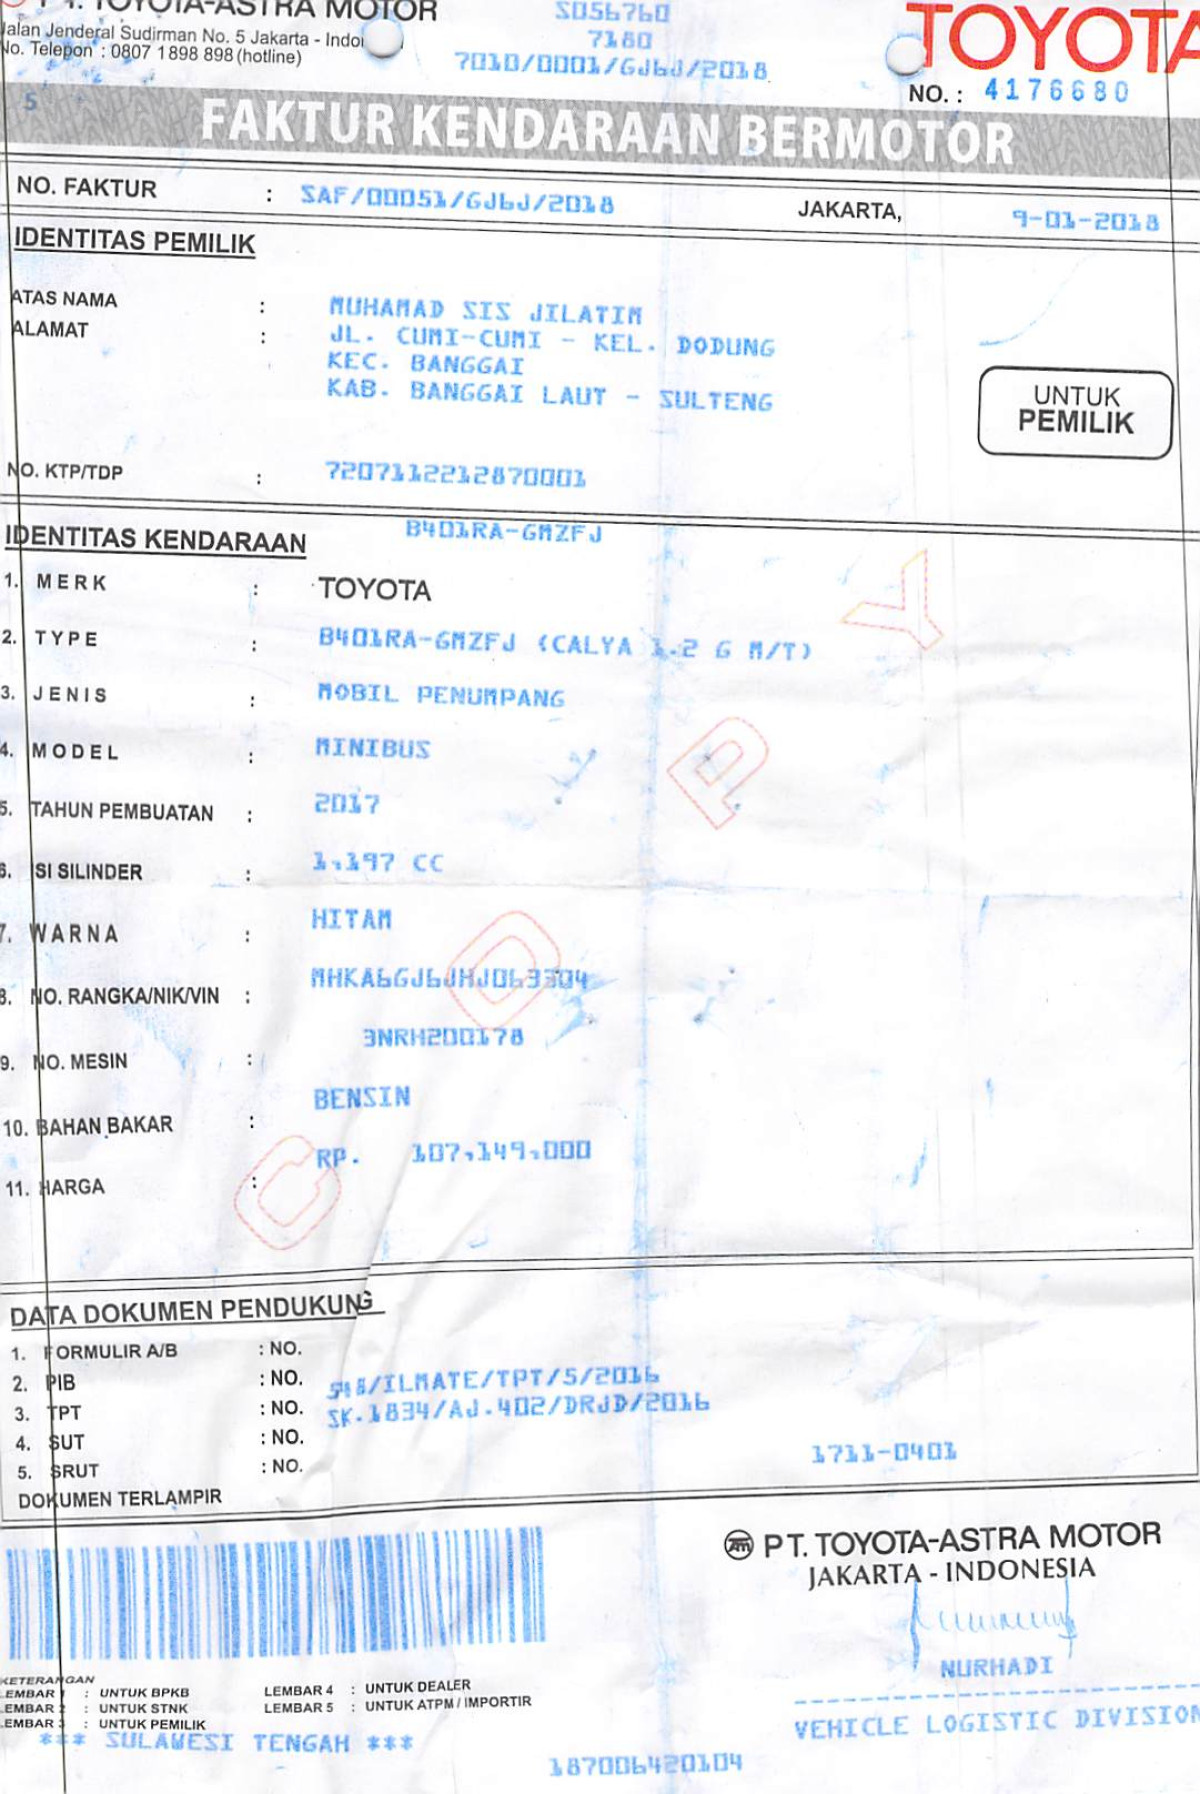 PT. TOYOTA-ASTRA MOTOR
Jalan Jenderal Sudirman No. 5 Jakarta - Indo
No. Telepon : 0807 1898 898 (hotline)
S056760
7180
7010/0001/GJ6J/2018
TOYOTA
NO. : 4176680
5
FAKTUR KENDARAAN BERMOTOR
NO. FAKTUR : SAF/00051/GJ6J/2018 JAKARTA, 9-01-2018
IDENTITAS PEMILIK
ATAS NAMA : MUHAMAD SIS JILATIM
ALAMAT : JL. CUMI-CUMI - KEL. DODUNG
KEC. BANGGAI
KAB. BANGGAI LAUT - SULTENG
UNTUK
PEMILIK
NO. KTP/TDP : 7207112212870001
IDENTITAS KENDARAAN B401RA-GMZFJ
1. MERK : TOYOTA
2. TYPE : B401RA-GMZFJ (CALYA 1.2 G M/T)
3. JENIS : MOBIL PENUMPANG
4. MODEL : MINIBUS
5. TAHUN PEMBUATAN : 2017
6. ISI SILINDER : 1,197 CC
7. WARNA : HITAM
8. NO. RANGKA/NIK/VIN : MHKA6GJ6JHJ063304
9. NO. MESIN : 3NRH200178
10. BAHAN BAKAR : BENSIN
11. HARGA : RP. 107,149,000
COPY
DATA DOKUMEN PENDUKUNG
1. FORMULIR A/B : NO.
2. PIB : NO.
3. TPT : NO. /ILMATE/TPT/5/2016
4. SUT : NO. SK.1834/AJ.402/DRJD/2016
5. SRUT : NO. 1711-0401
DOKUMEN TERLAMPIR
PT. TOYOTA-ASTRA MOTOR
JAKARTA - INDONESIA
NURHADI
VEHICLE LOGISTIC DIVISION
KETERANGAN
LEMBAR 1 : UNTUK BPKB LEMBAR 4 : UNTUK DEALER
LEMBAR 2 : UNTUK STNK LEMBAR 5 : UNTUK ATPM / IMPORTIR
LEMBAR 3 : UNTUK PEMILIK
*** SULAWESI TENGAH ***
187006420104